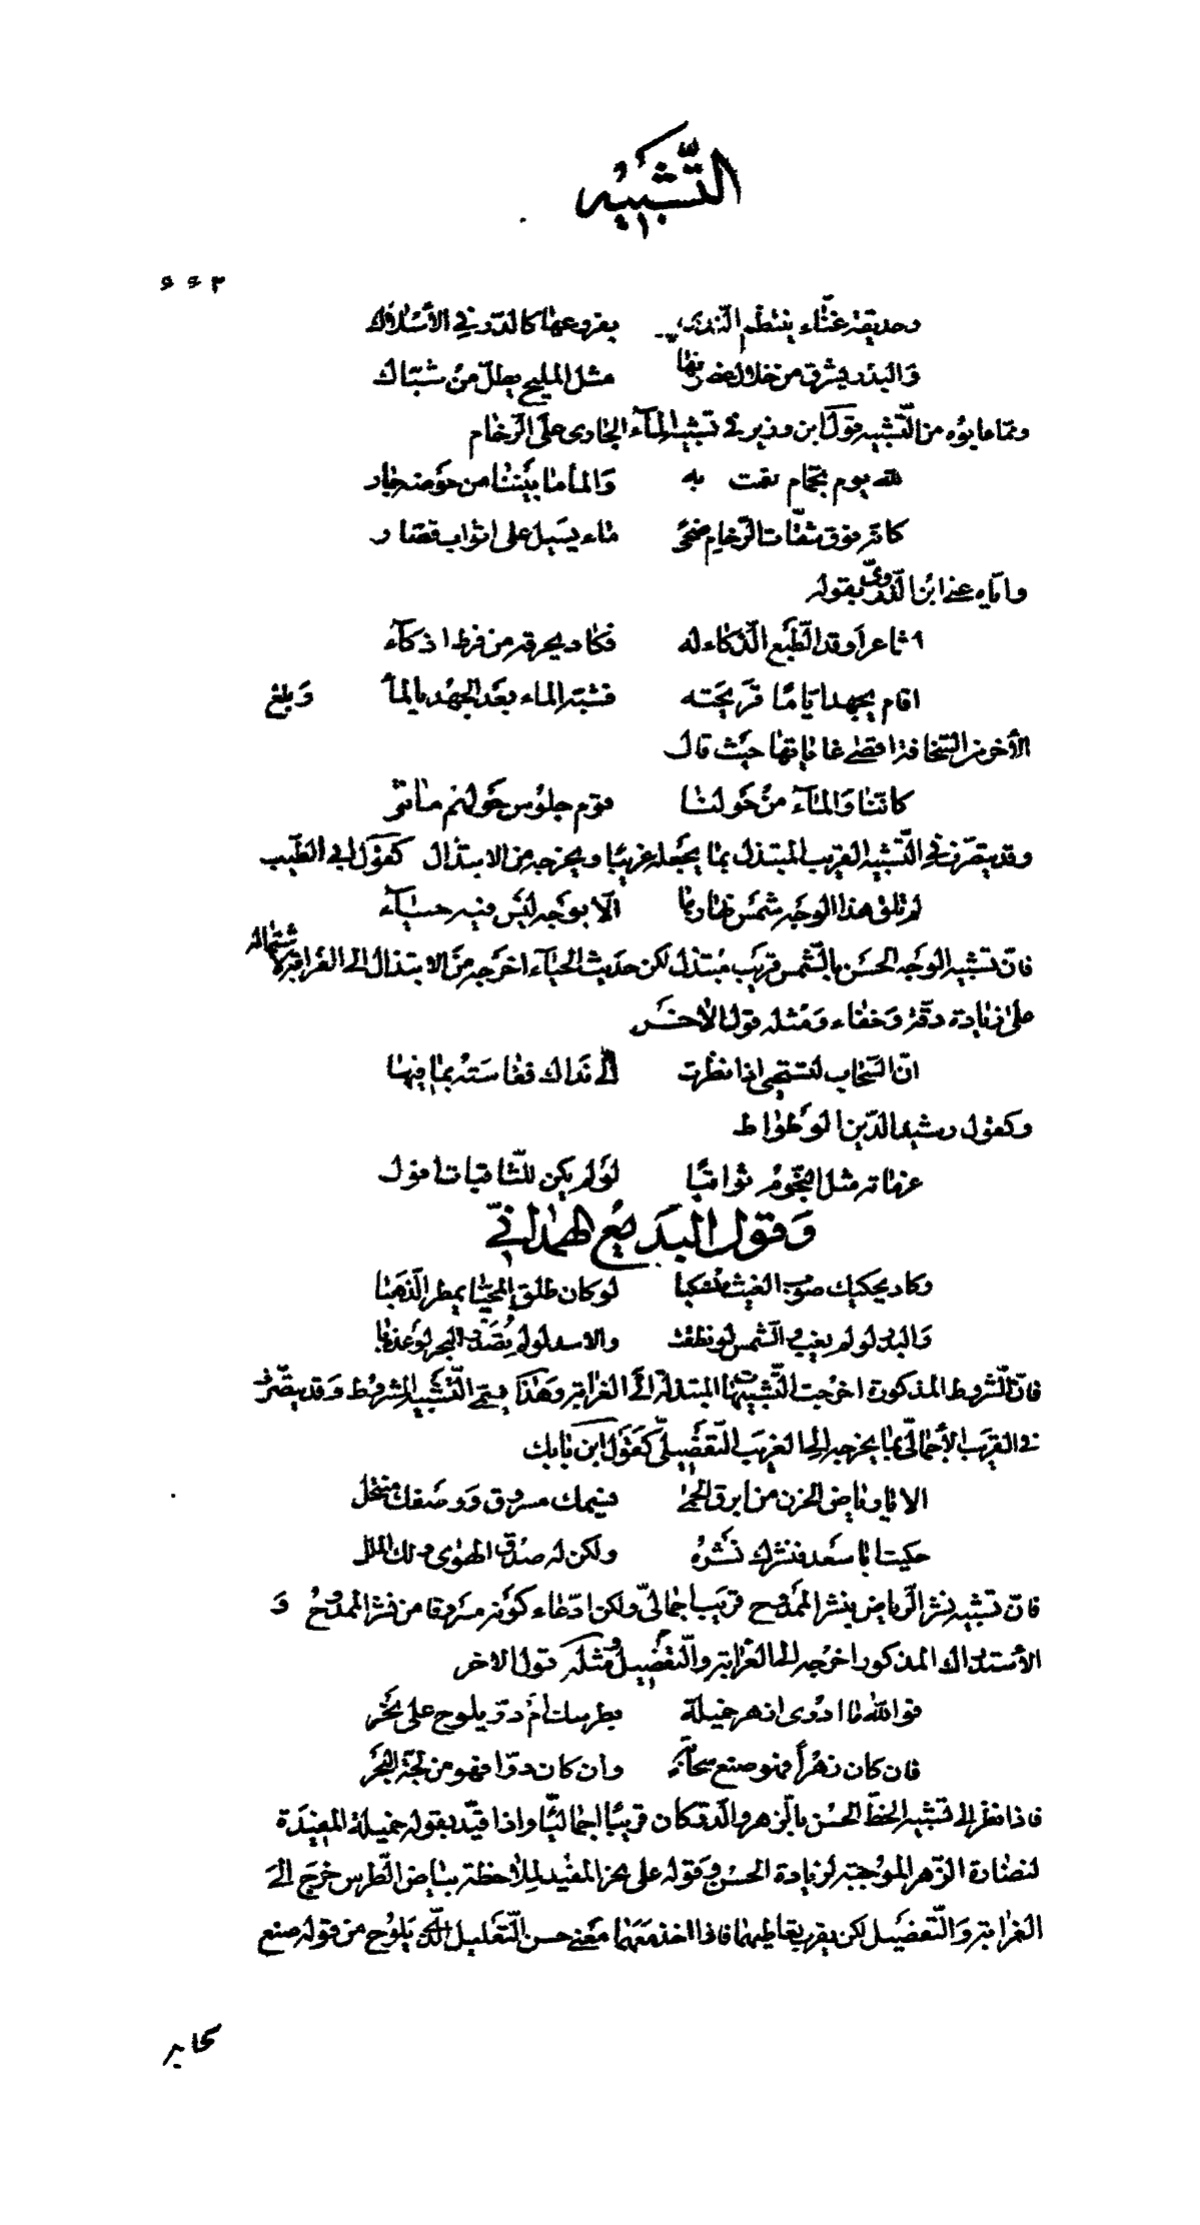 التّشبيه
وحديقة غنّاء ينتظم النّدى بفروعها كالدّرّ في الأسلاك
والبدر يشرق من خلال غصونها مثل المليح يطلّ من شبّاك
وممّا عابوه من التّشبيه قول ابن وزير في تشبيه الماء الجارى على الرّخام
لله يوم بحمّام نعمت به والماء ما بيننا من حوضه جار
كانّه فوق شقّات الرّخام ضحى ماء يسيل على اثواب قصّار
وايّاه عنى ابن الذّروىّ بقوله
وشاعر أوقد الطّبع الذّكاء له فكاد يحرقه من فرط اذكاء
اقام يجهد ايّامًا قريحته فشبّه الماء بعد الجهد بالماء وبلغ
الأخر من السّخافة اقصى غاياتها حيث قال
كانّنا والماء من حولنا قوم جلوس حولهم ماء
وقد يتصرّف في التّشبيه القريب المبتذل بما يجعله غريبًا ويخرجه من الابتذال كقول ابي الطّيّب
لم تلق هذا الوجه شمس نهارنا الّا بوجه ليس فيه حياء
فانّ تشبيه الوجه الحسن بالشّمس قريب مبتذل لكن حديث الحياء اخرجه من الابتذال الى الغرابة لاشتماله
على زيادة دقّة وخفاء ومثله قول الأخر
انّ السّحاب لتستحيى اذا نظرت الى نداك فقاسته بما فيها
وكقول رشيد الدّين الوطواط
عزماته مثل النّجوم ثواقبًا لو لم يكن للثّاقبات افول
وقول البديع الهمدانيّ
وكاد يحكيك صوب الغيث منسكبا لو كان طلق المحيّا يمطر الذّهبا
والبدر لو لم يغب والشّمس لو نطقت والاسد لو لم تُصَد والبحر لو عذبا
فانّ الشّروط المذكورة اخرجت التّشبيهات المبتذلة الى الغرابة وهذا يسمّى التّشبيه المشروط وقد يتصرّف
في القريب الأجماليّ بما يخرجه الى الغريب التّفصيليّ كقول ابن بابك
الا يا رياض الحزن من ابرق الحمى نسيمك مسروق ووصفك منتحل
حكيت ابا سعد فنشرك نشره ولكن له صدق الهوى ولك الملل
فانّ تشبيه نشر الرّياض بنشر الممدوح قريب اجماليّ ولكن ادّعاء كونه مسروقا من نشر الممدوح و
الأستدراك المذكور اخرجه الى الغرابة والتّفصيل ومثله قول الاخر
فو الله ما ادرى ازهر خميلة بطرسك ام درّ يلوح على نحر
فان كان زهرًا فهو صنع سحابة وان كان درّا فهو من لجّة البحر
فاذا نظر الى تشبيه الخطّ الحسن بالزّهر والدّرّ كان قريبًا اجماليًّا واذا قيّد بقوله خميلة المفيدة
لنضارة الزّهر الموجبة لزيادة الحسن وقوله على نحر المفيد لملاحظة بياض الطّرس خرج الى
الغرابة والتّفصيل لكن بقرب تعاطيهما فاذا اخذ معهما معنى حسن التّعليل الّذى يلوح من قوله صنع
سحابة